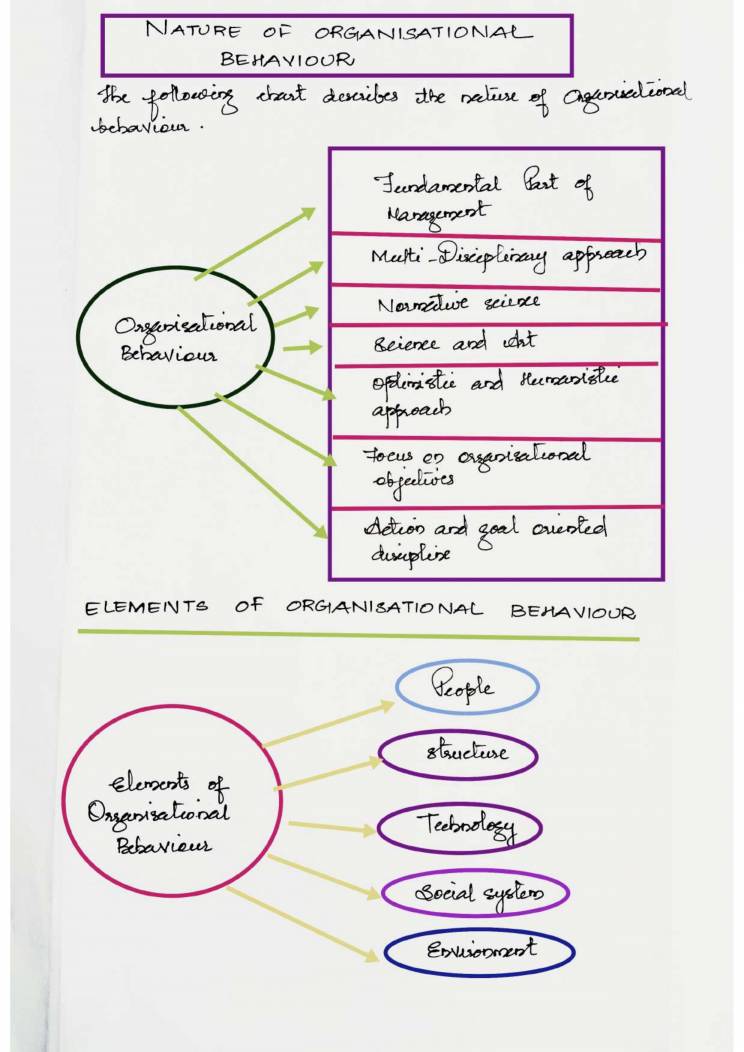 NATURE OF ORGANISATIONAL
BEHAVIOUR
The following chart describes the nature of Organisational
behaviour.
Fundamental Part of
Management
Multi-Disciplinary approach
Normative science
Science and Art
Optimistic and Humanistic
approach
Focus on organisational
objectives
Action and goal oriented
discipline
Organisational
Behaviour
ELEMENTS OF ORGANISATIONAL BEHAVIOUR
People
Structure
Technology
Social system
Environment
Elements of
Organisational
Behaviour